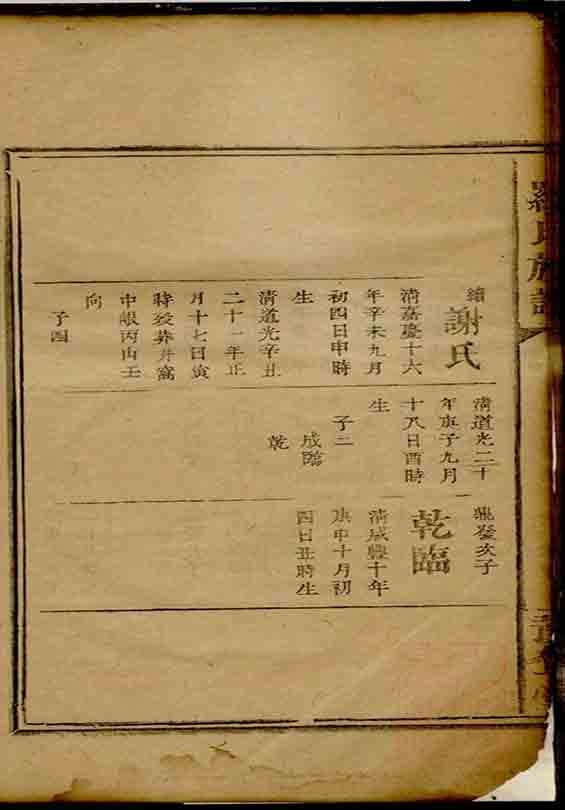 羅氏族譜
續
謝氏
清嘉慶十六
年辛未九月
初四日申時
生
清道光辛丑
二十一年正
月十七日寅
時歿葬井窩
中嘅丙山壬
向
子四
清道光二十
年庚子九月
十八日酉時
生
子二
成臨
乾
兆發次子
乾臨
清咸豐十年
庚申十月初
四日丑時生